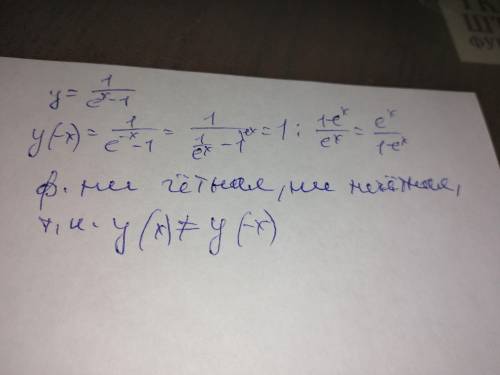 y = 1/(eˣ-1)
y(-x) = 1/(e⁻ˣ-1) = 1/(1/eˣ - 1^eˣ) = 1 : (1-eˣ)/eˣ = eˣ/(1-eˣ)
ф. ни чётная, ни нечётная,
т.к. y(x) ≠ y(-x)